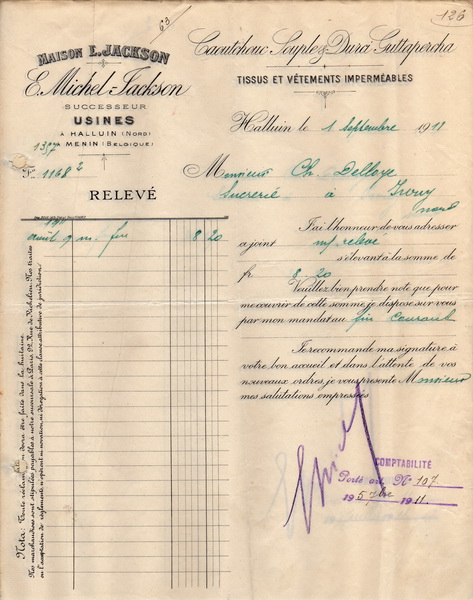 63
126
MAISON E. JACKSON
E. Michel-Jackson
SUCCESSEUR
USINES
À HALLUIN (NORD)
À MENIN (BELGIQUE)
1307
Fo 1168 2
RELEVÉ
Caoutchouc Souple & Durci Guttapercha
TISSUS ET VÊTEMENTS IMPERMÉABLES
Halluin le 1 Septembre 1911
Monsieur Ch. Delloye
Sucrerie à Iwuy
Nord
1911
août 9 m. fre 8 20
J'ai l'honneur de vous adresser
ci joint m/ relevé
s'élevant à la somme de
fr 8.20
Veuillez bien prendre note que pour
me couvrir de cette somme je dispose sur vous
par mon mandat au fin courant
Je recommande ma signature à
votre bon accueil et dans l'attente de vos
nouveaux ordres, je vous présente Monsieur
mes salutations empressées
COMPTABILITÉ
Porté art. No 107
19 5 7bre 1911.
Nota: Toute réclamation devra être faite dans la huitaine.
Nos marchandises sont stipulées payables à notre succursale à Paris, 92, Rue de Richelieu. Nos traites
ou l'acceptation de règlements n'opèrent ni novation, ni dérogation à cette clause attributive de juridiction.